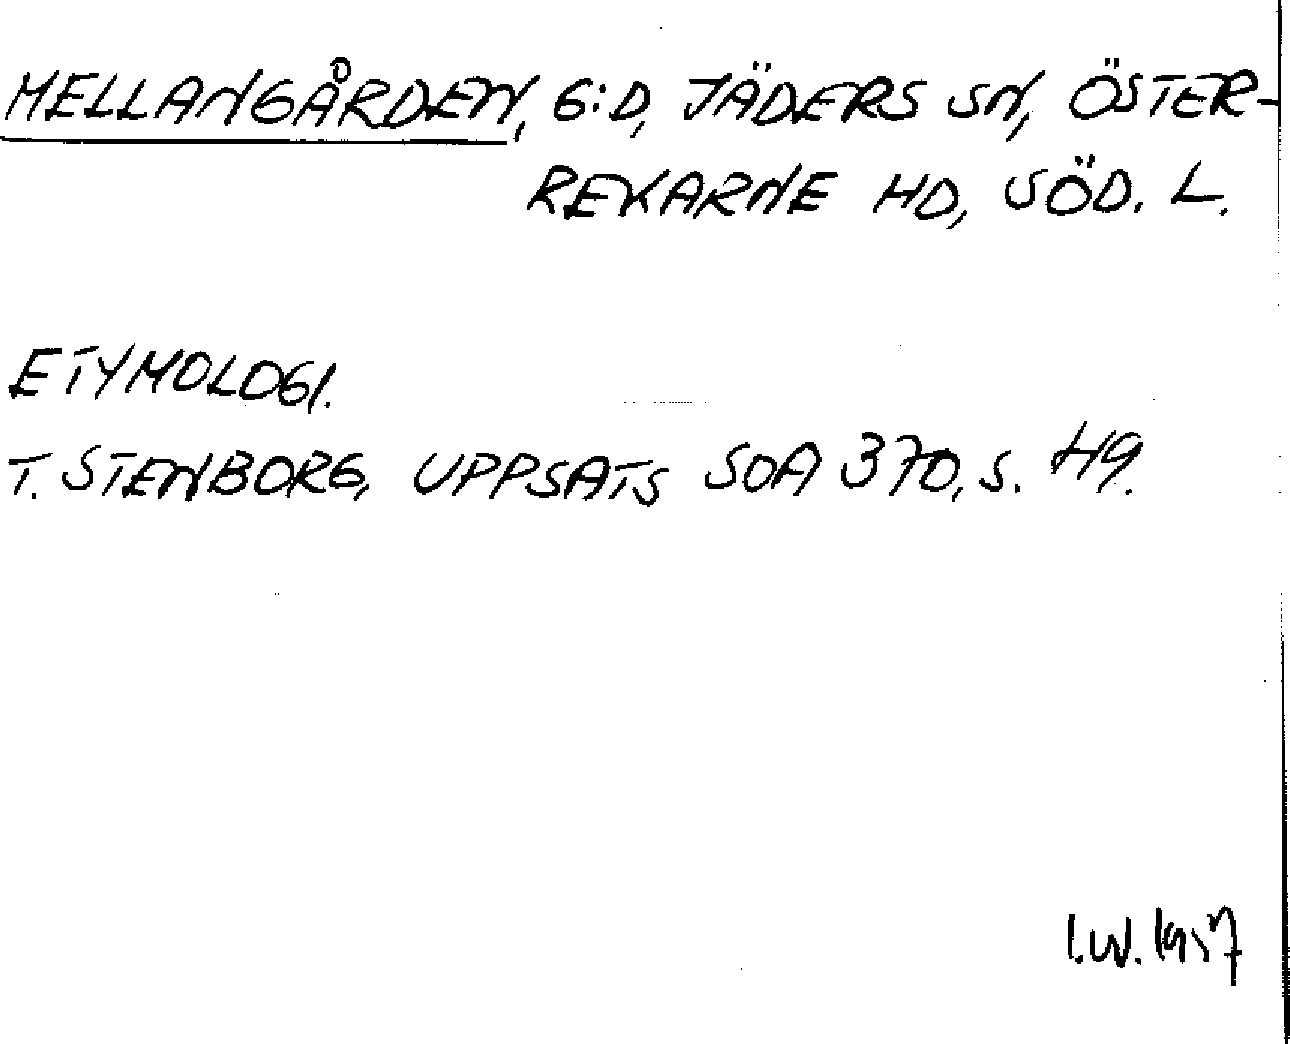 MELLANGÅRDEN, G:D, JÄDERS SN, ÖSTER-
REKARNE HD, SÖD. L.
ETYMOLOGI.
T. STENBORG, UPPSATS SOA 370, S. 49.
I.W. 1957